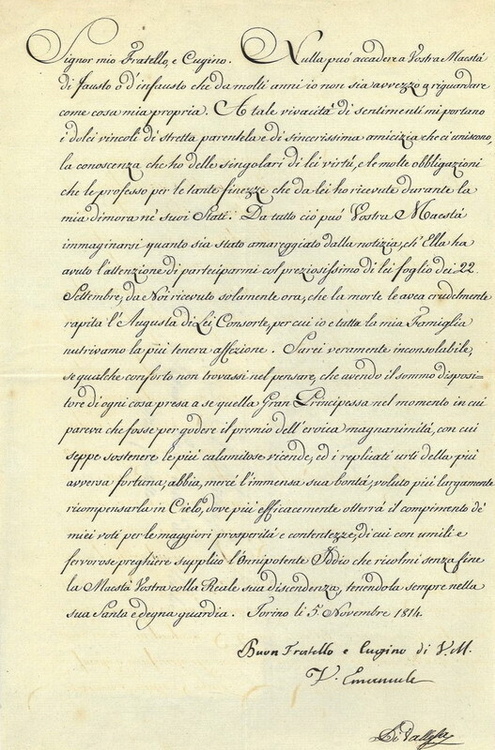 Signor mio Fratello, e Cugino. Nulla può accadere a Vostra Maestà
di fausto o d'infausto che da molti anni io non sia avvezzo a riguardare
come cosa mia propria. A tale vivacità di sentimenti mi portano
i dolci vincoli di stretta parentela e di sincerissima amicizia che ci uniscono,
la conoscenza che ho delle singolari di lei virtù, e le molte obbligazioni
che le professo per le tante finezze che da lei ho ricevute durante la
mia dimora ne' suoi Stati. Da tutto ciò può Vostra Maestà
immaginarsi quanto sia stato amareggiato dalla notizia, ch'Ella ha
avuto l'attenzione di parteciparmi col preziosissimo di lei foglio dei 22.
Settembre, da Noi ricevuto solamente ora, che la morte le avea crudelmente
rapita l'Augusta di Lei Consorte, per cui io e tutta la mia Famiglia
nutrivamo la più tenera affezione. Sarei veramente inconsolabile,
se qualche conforto non trovassi nel pensare, che avendo il sommo disposi-
tore di ogni cosa presa a se quella Gran Principessa nel momento in cui
pareva che fosse per godere il premio dell'eroica magnanimità, con cui
seppe sostenere le più calamitose vicende, ed i replicati urti della più
avversa fortuna, abbia, mercè l'immensa sua bontà, voluto più largamente
ricompensarla in Cielo, dove più efficacemente otterrà il compimento de'
miei voti per le maggiori prosperità e contentezze, di cui con umili e
fervorose preghiere supplico l'Onnipotente Iddio che ricolmi senza fine
la Maestà Vostra colla Reale sua discendenza, tenendola sempre nella
sua Santa e degna guardia. Torino li 5 Novembre 1814.
Buon Fratello e Cugino di V. M.
V. Emanuele
Di Vallesa